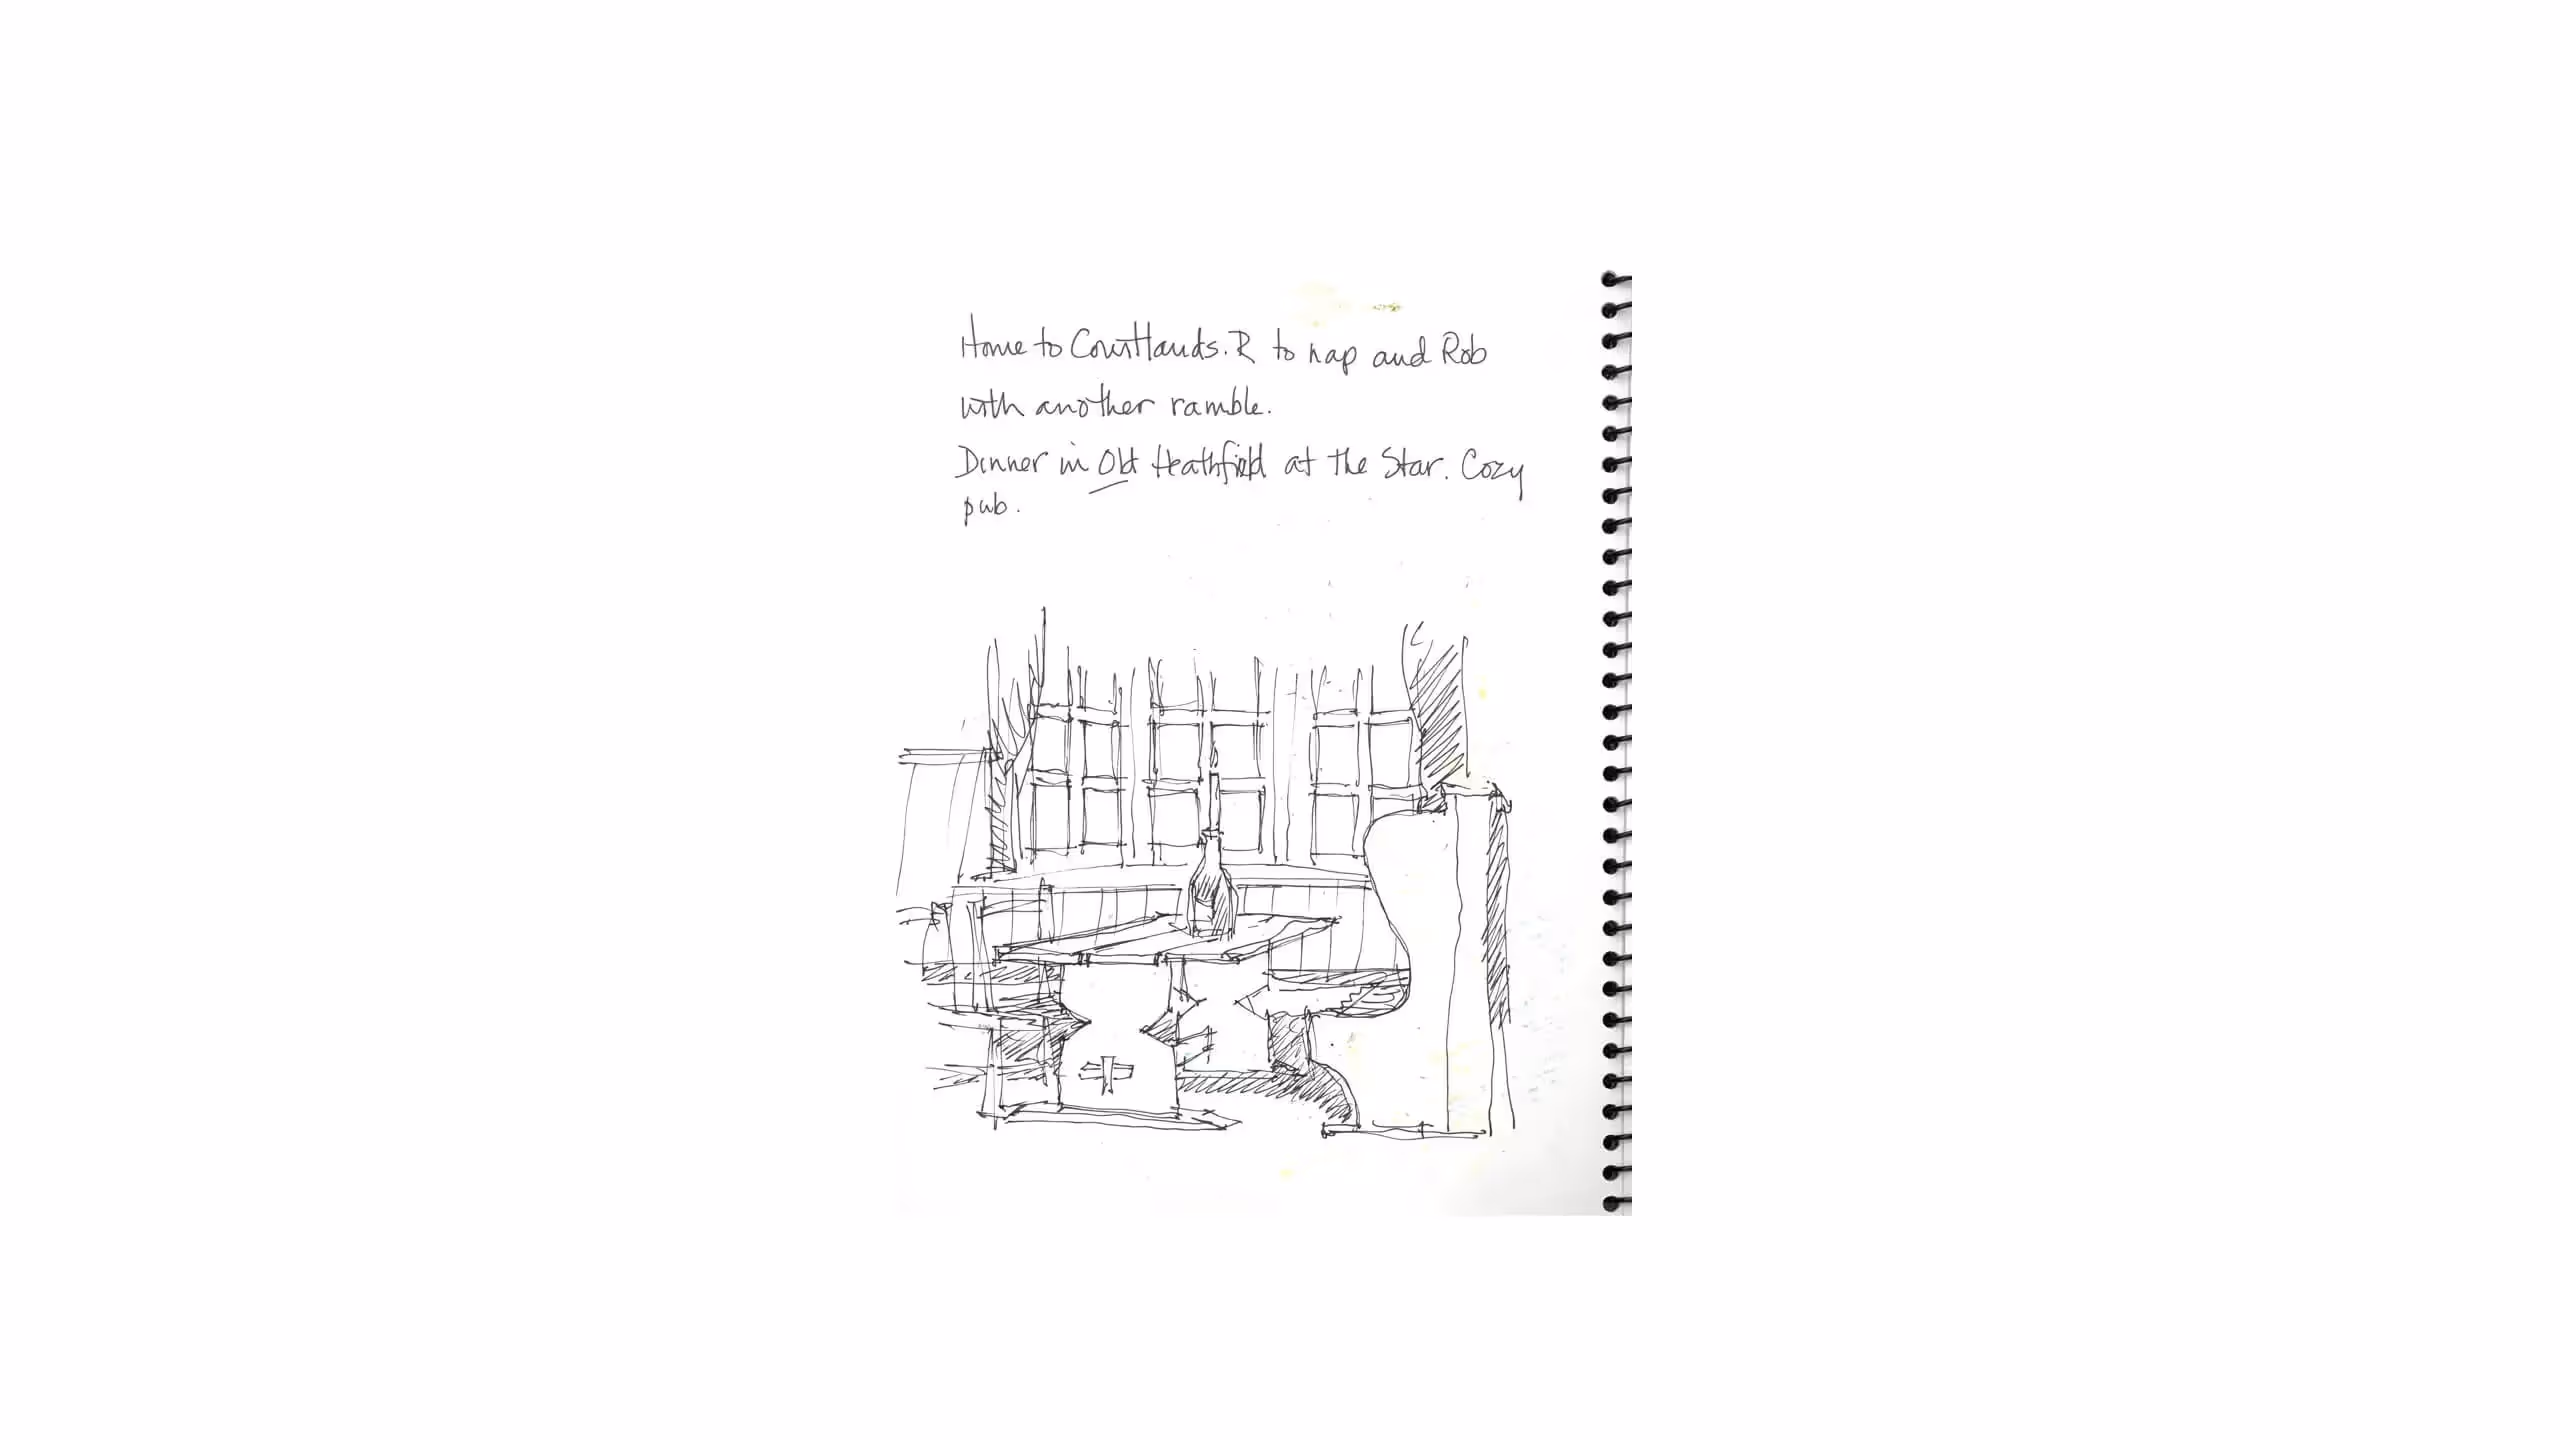 Home to Courtlands. R to nap and Rob
with another ramble.
Dinner in Old Heathfield at the Star. Cozy
pub.